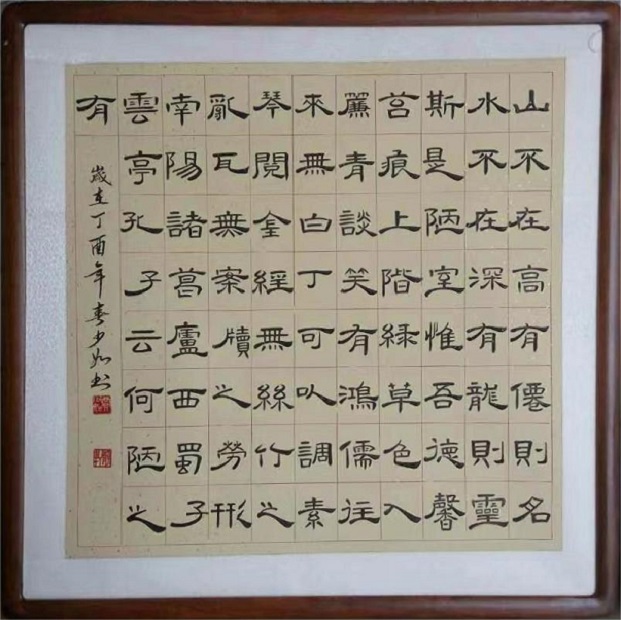 山不在高有僊則名
水不在深有龍則靈
斯是陋室惟吾德馨
苔痕上階緑草色入
簾青談笑有鴻儒往
來無白丁可以調素
琴閲金經無絲竹之
亂耳無案牘之勞形
南陽諸葛廬西蜀子
雲亭孔子云何陋之
有
歲在丁酉年春少如书